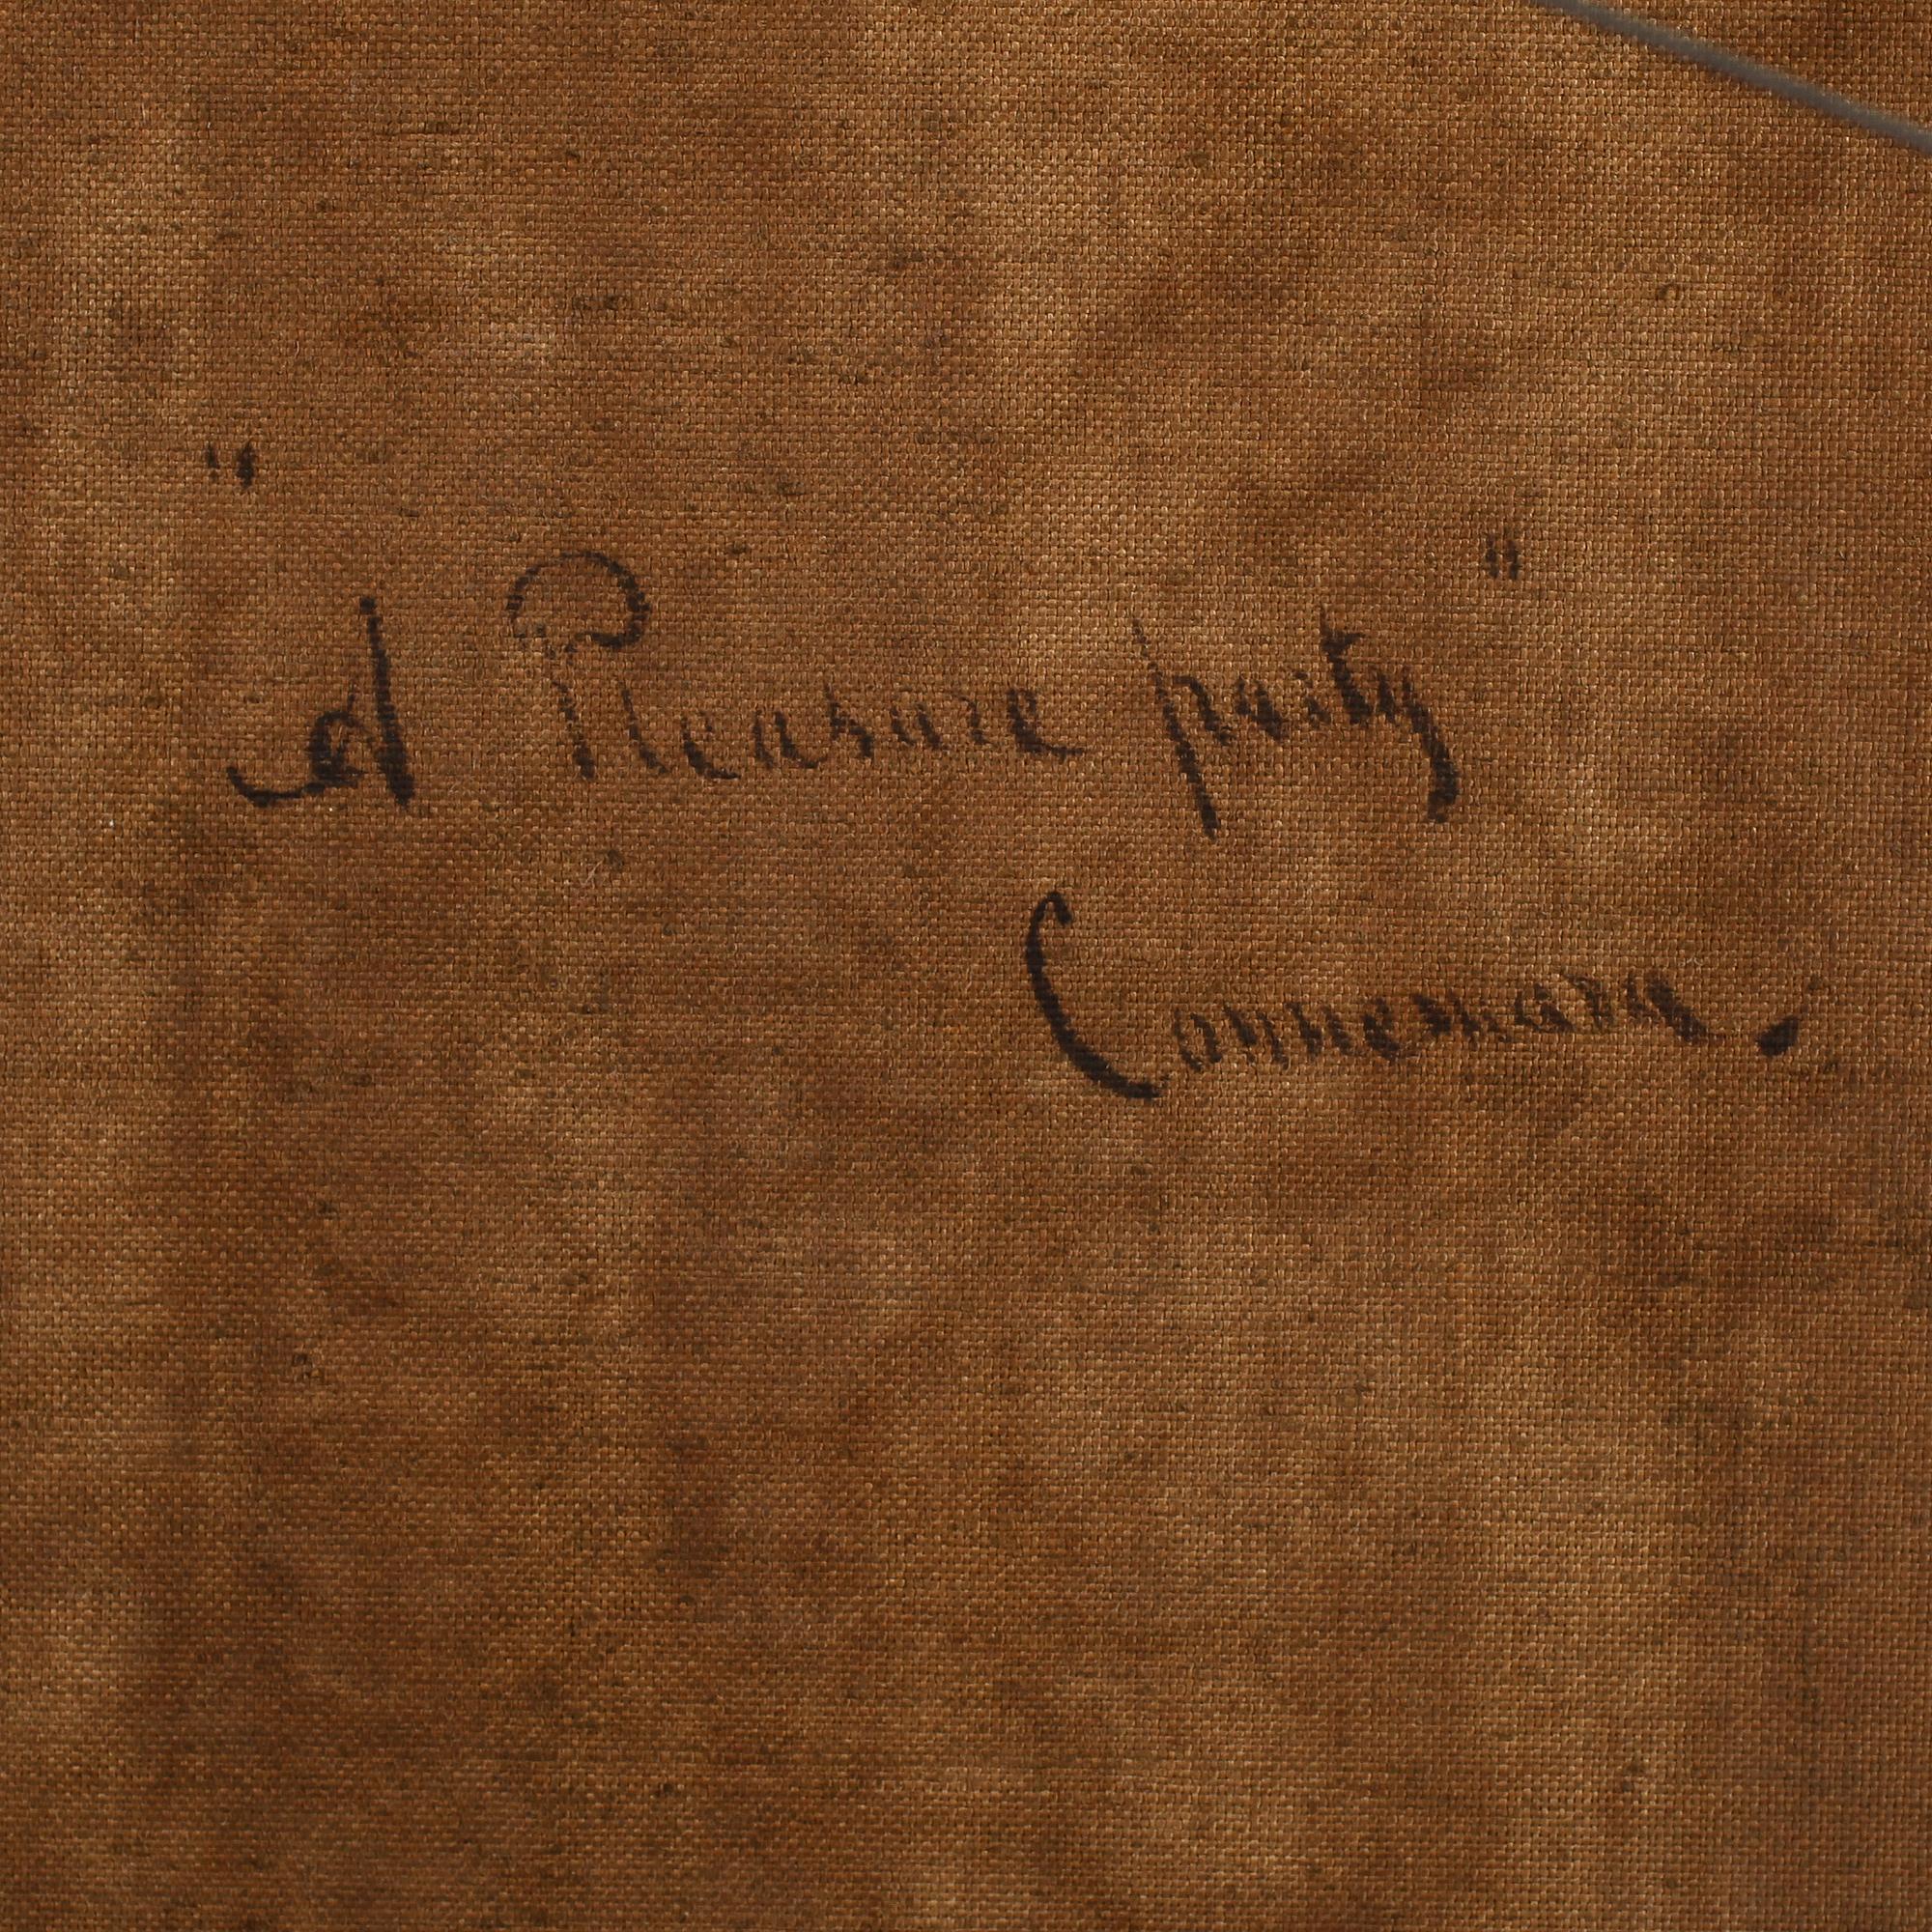 "A Pleasure party"
Connemara.